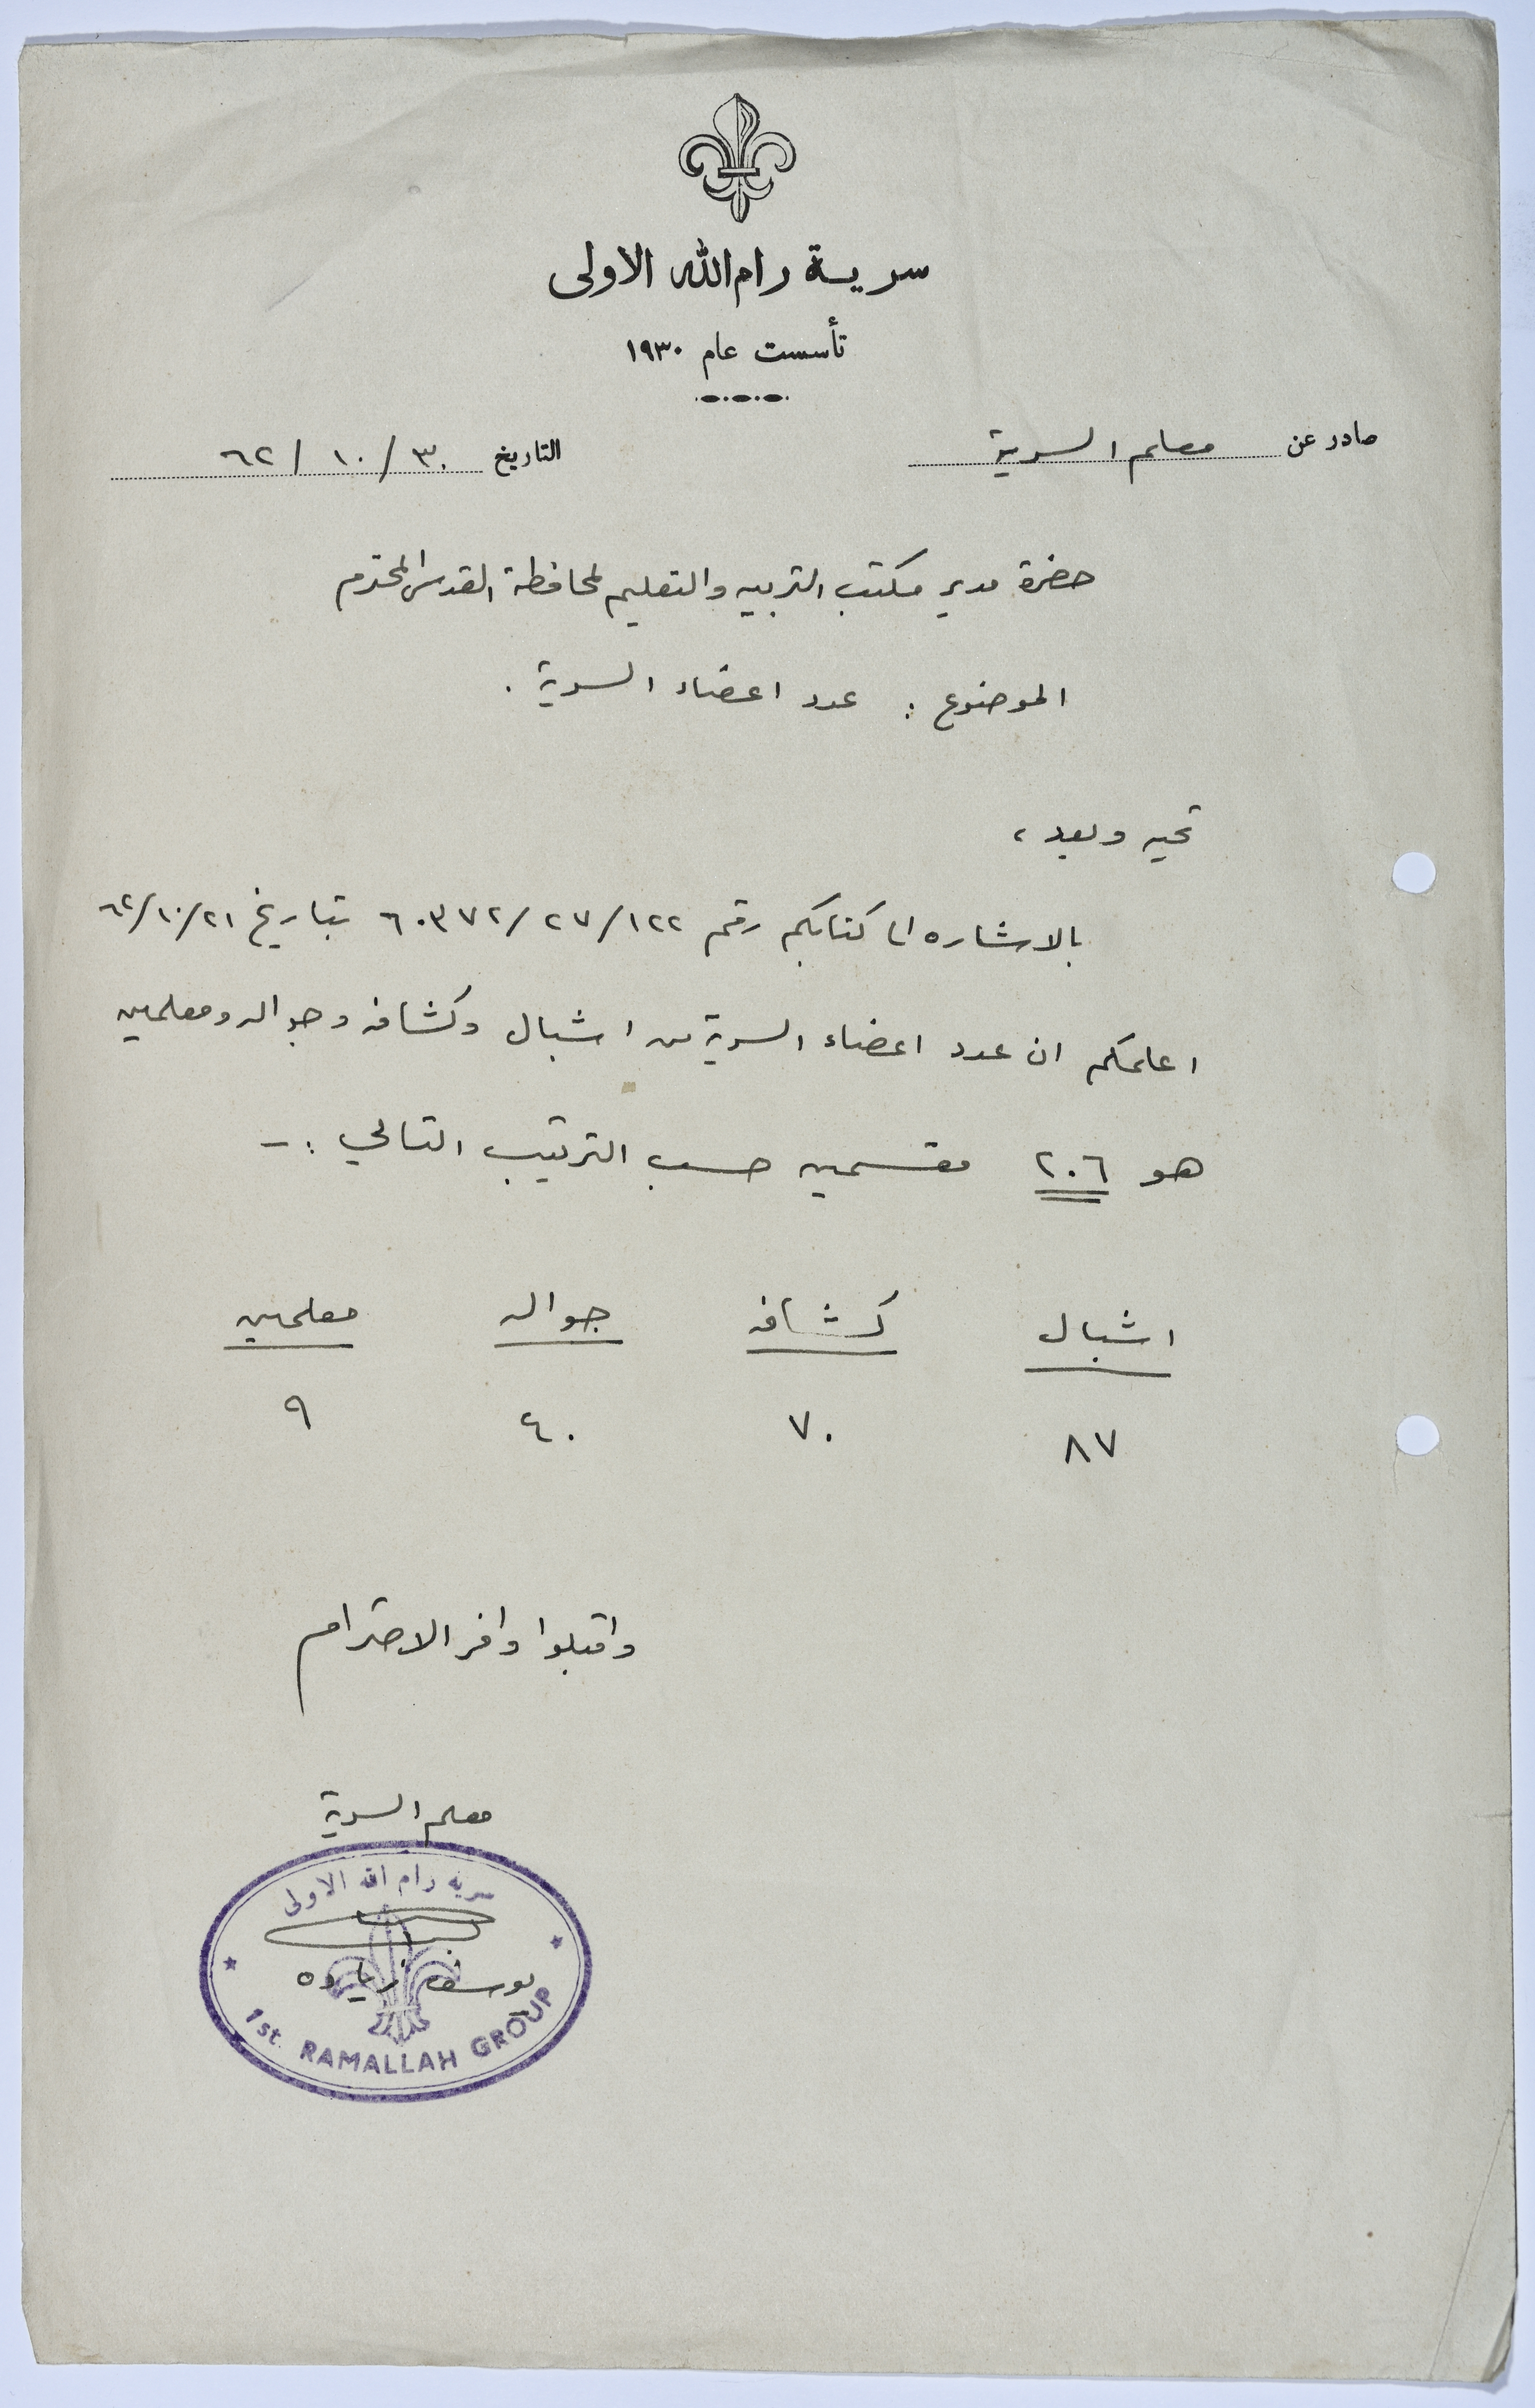 سرية رام الله الاولى
تأسست عام ١٩٣٠
صادر عن معلم السرية
التاريخ ٣٠/١٠/٦٢
حضرة مدير مكتب التربيه والتعليم لمحافظة القدس المحترم
الموضوع : عدد اعضاء السرية .
تحيه وبعد ،
بالاشاره الى كتابكم رقم ١٢٢/٢٧/٦٠٣٧٢ بتاريخ ٢١/١٠/٦٢
اعلمكم ان عدد اعضاء السرية من اشبال وكشافه وجواله ومعلمين
هو ٢٠٦ مقسمين حسب الترتيب التالي :-
اشبال كشافه جواله معلمين
٨٧ ٧٠ ٤٠ ٩
واقبلوا وافر الاحترام
معلم السرية
سرية رام الله الاولى
يوسف زياده
1st. RAMALLAH GROUP